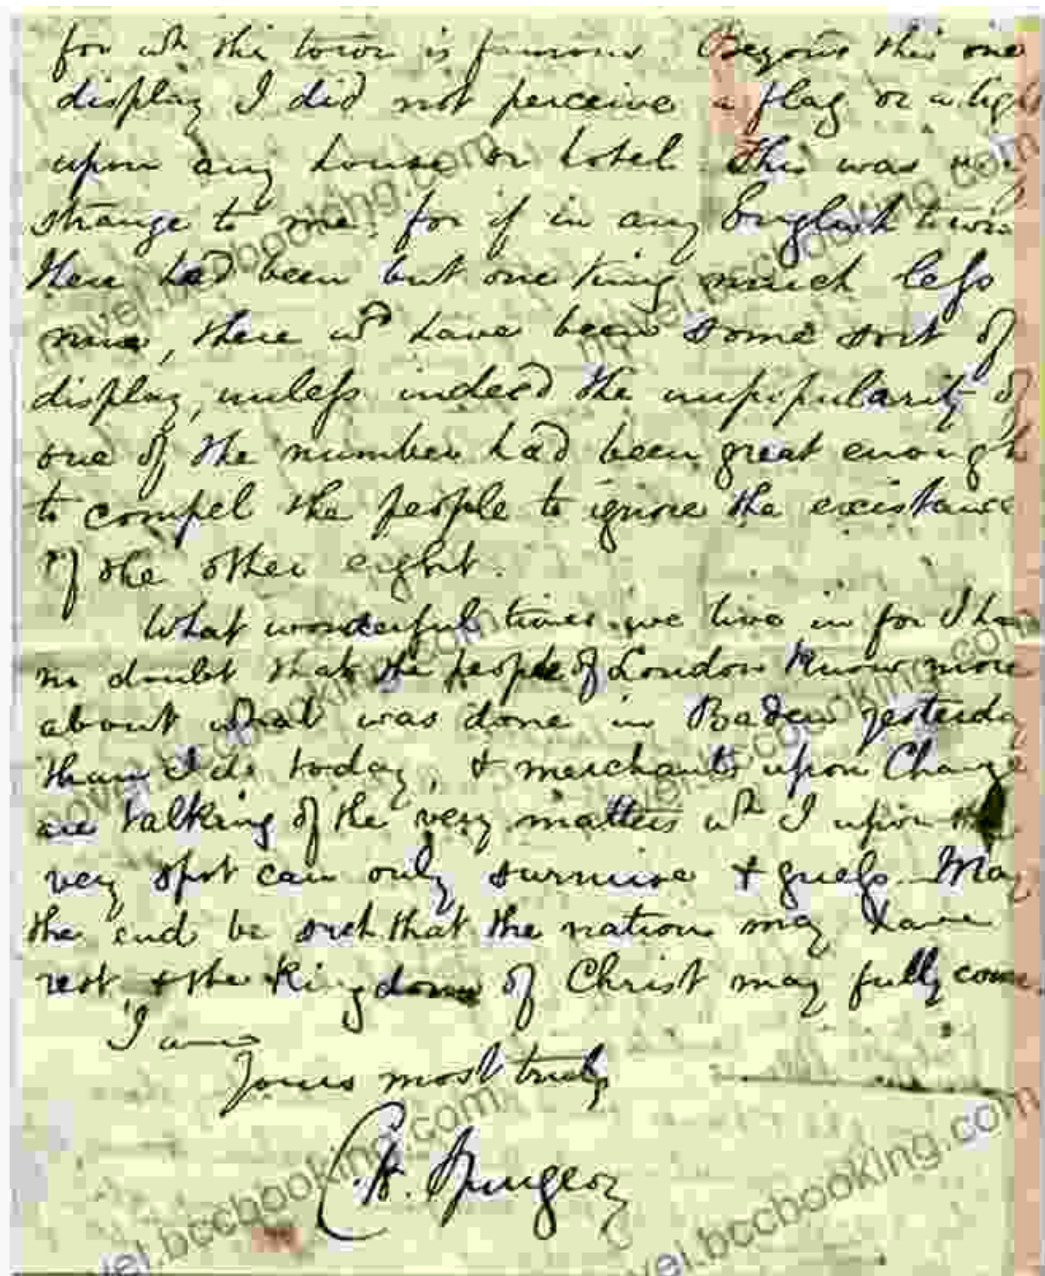 for wh the town is famous Beyond this one
display I did not perceive a flag or a light
upon any house or hotel This was very
strange to me, for if in any English town
there had been but one king much less
nine, there wd have been some sort of
display, unless indeed the unpopularity of
one of the number had been great enough
to compel the people to ignore the existance
of the other eight.
What wonderful times we live in for I have
no doubt that the people of London know more
about what was done in Baden yesterday
than I do today, & merchants upon Change
are talking of the very matters wh I upon the
very spot can only surmise & guess. May
the end be such that the nations may have
rest & the Kingdom of Christ may fully come.
I am
Yours most truly
C. H. Spurgeon
novel.bccbooking.com
novel.bccbooking.com
novel.bccbooking.com
novel.bccbooking.com
novel.bccbooking.com
novel.bccbooking.com